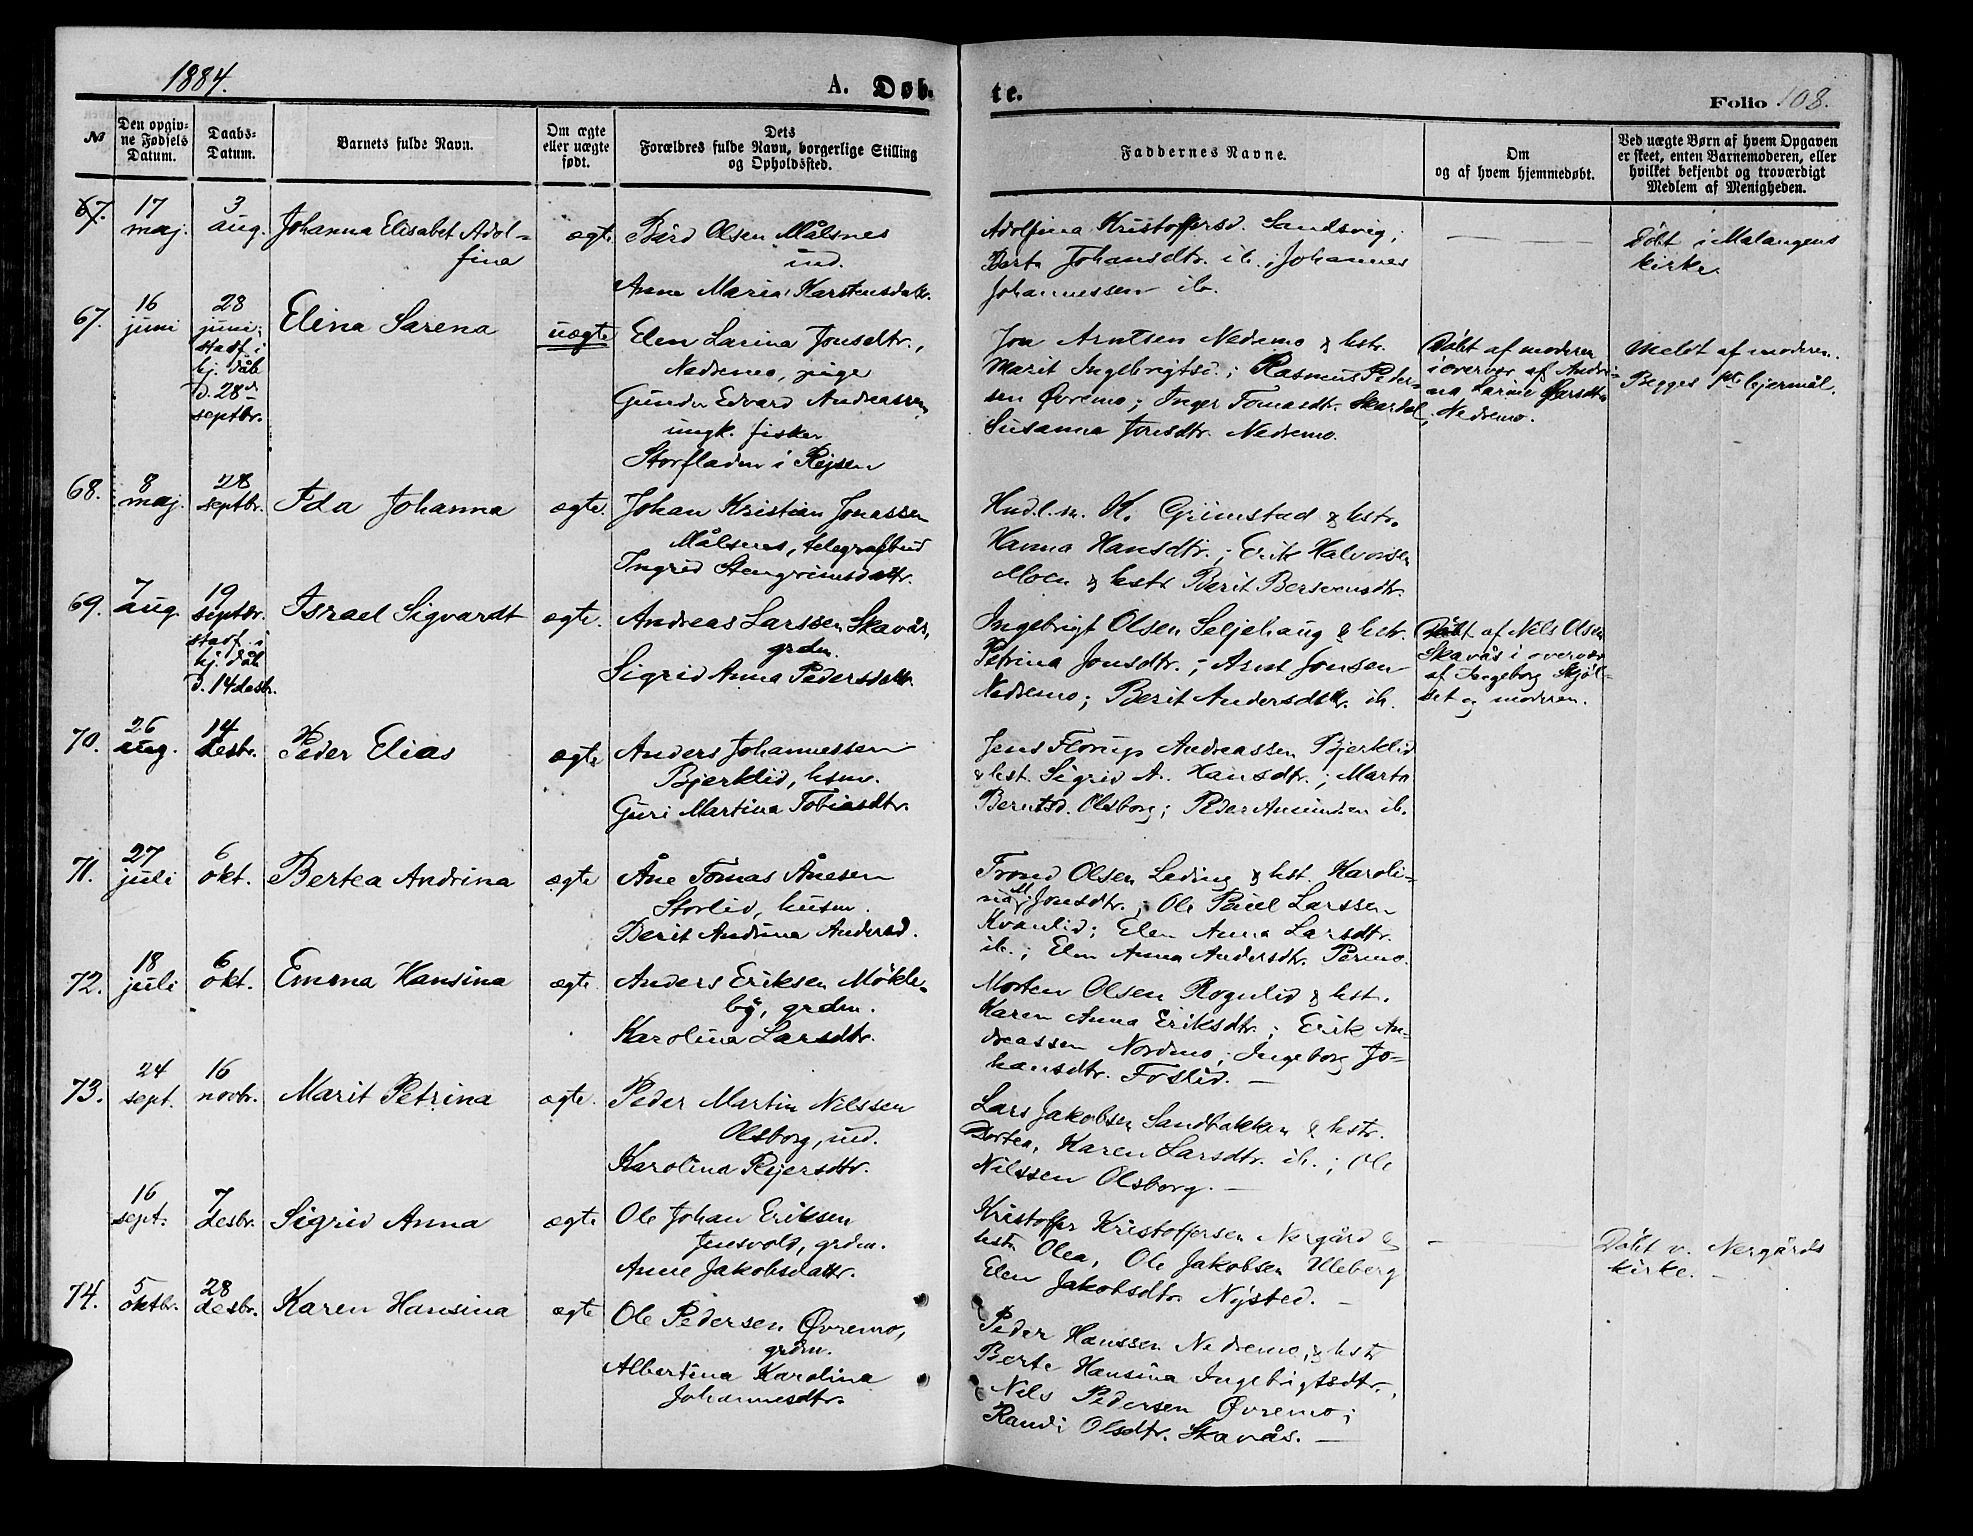 1884.
A. Døb-
te.
Folio 108.
№
Den opgiv-
ne Fødsels
Datum.
Daabs-
Datum.
Barnets fulde Navn.
Om ægte
eller uægte
født.
Dets
Forældres fulde Navn, borgerlige Stilling
og Opholdssted.
Faddernes Navne.
Om
og af hvem hjemmedøbt.
Ved uægte Børn af hvem Opgaven
er skeet, enten Barnemoderen, eller
hvilket bekjendt og troværdigt
Medlem af Menigheden.
67. 17 maj. 3 aug.
Johanna Elisabet Adol=
fina
ægte
Bård Olsen Målsnes
ind.
Anna Maria Karstensdatr.
Adolfina Kristoffersd. Sandsvig;
Berte Johansdtr. ib.; Johannes
Johannessen ib.
Døbt i Malangens
kirke.
67. 16 juni
28
juni;
stadf. i
hj. dåb
d. 28de
septbr.
Elina Sarena
uægte
Elen Larina Jonsdtr.,
Nedremo, pige
Gunder Edvard Andreassen
ungk. fisker
Storfladen i Rejsen
Jon Arntsen Nedremo & hstr.
Marit Ingebrigtsd.; Rasmus Peder-
sen Øvremo; Inger Tomasdtr. Skardal,
Susanna Jonsdtr. Nedremo.
Døbt af moderen
i overvær af Andri-
na Larsdtr.
Nedremo.
Meldt af moderen.
Begges 1ste lejermål.
68. 8 maj. 28 septbr.
Ida Johanna
ægte.
Johan Kristian Jonassen
Målsnes, telegrafbud
Ingrid Stengrimsdattr.
Handl.m. O. Grimstad & hstr.
Hanna Hansdtr.; Erik Halvorsen
Moen & hstr. Berit Bersvensdtr.
69. 7 aug.
19
septbr.
stadf. i
hj. dåb
d. 14 desbr.
Israel Sigvardt
ægte.
Andreas Larssen Skavås,
grdm.
Sigrid Anna Pedersdattr.
Ingebrigt Olsen Seljehaug & hstr.
Petrina Jonsdtr.; Arnt Jonsen
Nedremo; Berit Andersdtr. ib.
Døbt af Nils Olsen
Skavås i overvær
af Ingeborg Skjøl-
det og moderen.
70. 26 aug. 14 desbr.
Peder Elias
ægte
Anders Johannessen
Bjerklid, husm.
Guri Martina Tobiasdtr.
Jens Florup Andreassen Bjerklid
& hst. Sigrid A. Hansdtr.; Marta
Berntsd. Olsborg; Peder Amundsen ib.
71. 27 juli 6 okt.
Bertea Andrina
ægte
Åne Tomas Ånesen
Storlid, husm.
Berit Andrina Andersd.
Trond Olsen Leding & hst. Karoli-
na M. Jonsdtr.; Ole Paul Larssen
Kvanlid; Elen Anna Larsdtr.
ib.; Elen Anna Andersdtr. Permo.
72. 18 juli 6 okt.
Emma Hansina
ægte.
Anders Eriksen Møkle-
by, grdm.
Karolina Larsdtr.
Morten Olsen Rognlid & hst.
Karen Anna Eriksdtr.; Erik An-
dreassen Nordmo; Ingeborg Jo-
hansdtr. Foslid. —
73. 24 sept. 16 novbr.
Marit Petrina
ægte.
Peder Martin Nilssen
Olsborg, ind.
Karolina Rejersdtr.
Lars Jakobsen Sandbakken & hstr.
Dortea, Karen Larsdtr. ib.; Ole
Nilssen Olsborg. —
16 sept. 7 desbr.
Sigrid Anna
ægte
Ole Johan Eriksen
Jensvold, grdm.
Anne Jakobsdattr.
Kristoffer Kristoffersen Nergård &
hstr. Olea, Ole Jakobsen Uleberg
Elen Jakobsdtr. Nysted. —
Døbt v. Nergårds
kirke. —
74. 5 oktbr. 28 desbr.
Karen Hansina
ægte
Ole Pedersen Øvremo,
grdm.
Albertina Karolina
Johannesdtr.
Peder Hanssen Nedremo, & hstr
Berte Hansina Ingebrigtsdtr.,
Nils Pedersen Øvremo;
Randi Olsdtr. Skavås. —